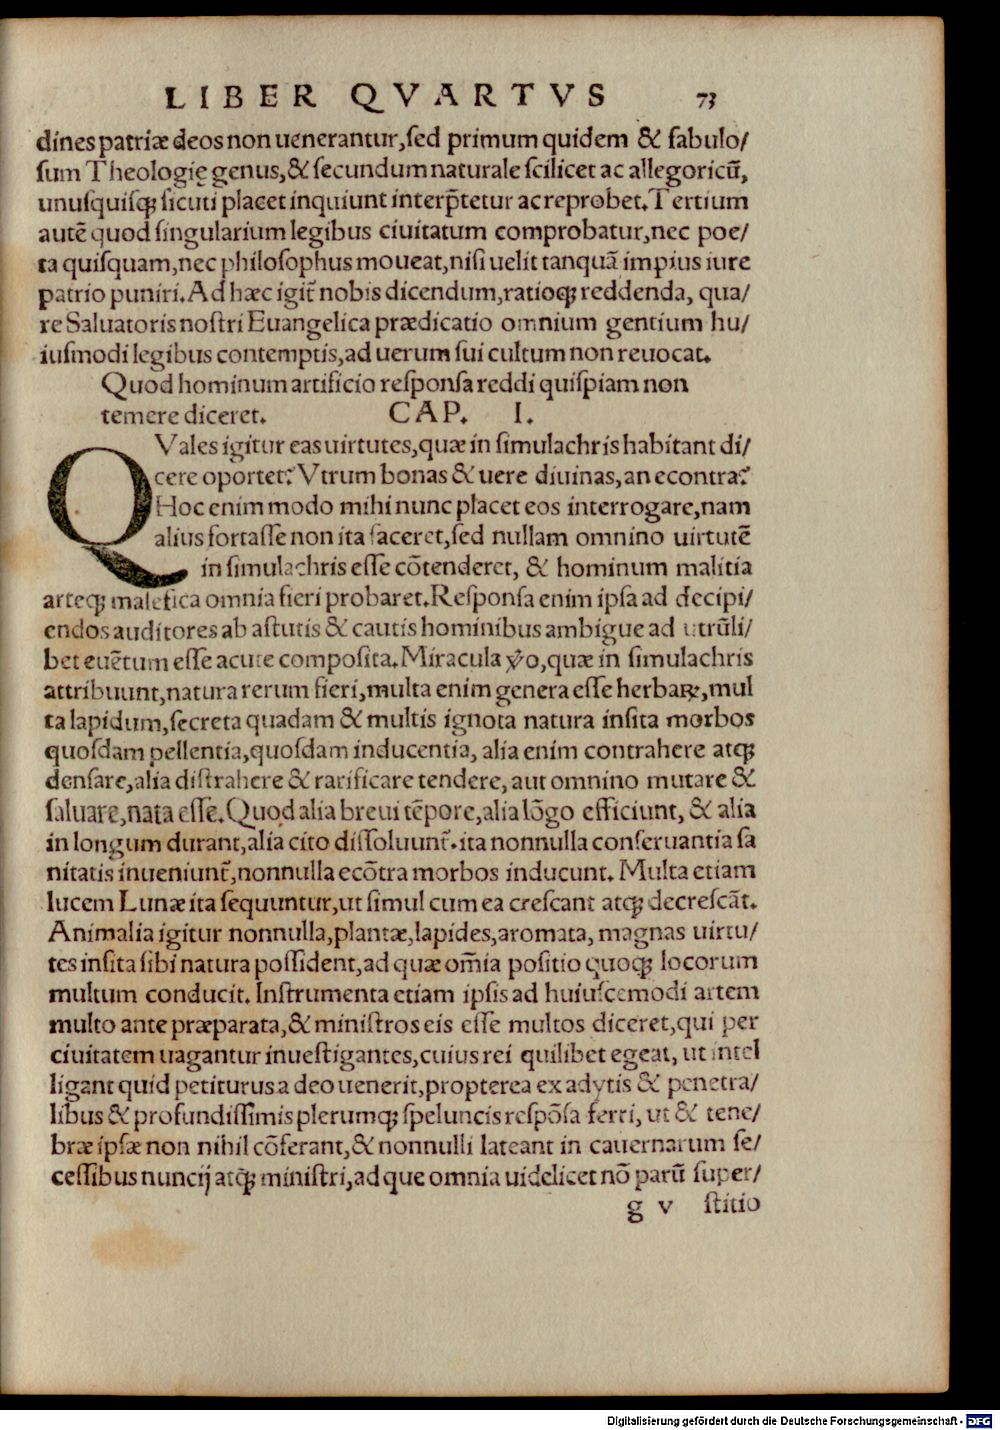 LIBER QVARTVS 73
dines patriæ deos non uenerantur, ſed primum quidem & fabulo/
ſum Theologię genus, & ſecundum naturale ſcilicet ac allegoricū,
unuſquiſq; ſicuti placet inquiunt interp̄tetur ac reprobet. Tertium
autē quod ſingularium legibus ciuitatum comprobatur, nec poe/
ta quiſquam, nec philoſophus moueat, niſi uelit tanquā impius iure
patrio puniri. Ad hæc igit̄ nobis dicendum, ratioq; reddenda, qua/
re Saluatoris noſtri Euangelica prædicatio omnium gentium hu/
iuſmodi legibus contemptis, ad uerum ſui cultum non reuocat.
Quod hominum artificio reſponſa reddi quiſpiam non
temere diceret. CAP. I.
QVales igitur eas uirtutes, quæ in ſimulachris habitant di/
cere oportet? Vtrum bonas & uere diuinas, an econtra?
Hoc enim modo mihi nunc placet eos interrogare, nam
alius fortaſſe non ita faceret, ſed nullam omnino uirtutē
in ſimulachris eſſe cōtenderet, & hominum malitia
arteq; malefica omnia fieri probaret. Reſponſa enim ipſa ad decipi/
endos auditores ab aſtutis & cautis hominibus ambigue ad utrūli/
bet euētum eſſe acute compoſita. Miracula ꝟo, quæ in ſimulachris
attribuunt, natura rerum fieri, multa enim genera eſſe herbaꝝ, mul
ta lapidum, ſecreta quadam & multis ignota natura inſita morbos
quoſdam pellentia, quoſdam inducentia, alia enim contrahere atq;
denſare, alia diſtrahere & rarificare tendere, aut omnino mutare &
ſaluare, nata eſſe. Quod alia breui tēpore, alia lōgo efficiunt, & alia
in longum durant, alia cito diſſoluunt̄. ita nonnulla conſeruantia ſa
nitatis inueniunt̄, nonnulla ecōtra morbos inducunt. Multa etiam
lucem Lunæ ita ſequuntur, ut ſimul cum ea creſcant atq; decreſcāt.
Animalia igitur nonnulla, plantæ, lapides, aromata, magnas uirtu/
tes inſita ſibi natura poſſident, ad quæ om̄ia poſitio quoq; locorum
multum conducit. Inſtrumenta etiam ipſis ad huiuſcemodi artem
multo ante præparata, & miniſtros eis eſſe multos diceret, qui per
ciuitatem uagantur inueſtigantes, cuius rei quilibet egeat, ut intel
ligant quid petiturus a deo uenerit, propterea ex adytis & penetra/
libus & profundiſſimis plerumq; ſpeluncis reſpōſa ferri, ut & tene/
bræ ipſæ non nihil cōferant, & nonnulli lateant in cauernarum ſe/
ceſſibus nuncij atq; miniſtri, ad que omnia uidelicet nō parū ſuper/
g v ſtitio
Digitalisierung gefördert durch die Deutsche Forschungsgemeinschaft - DFG